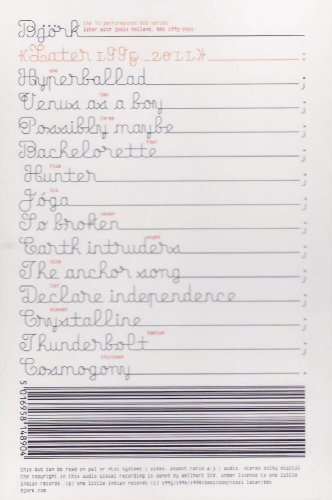 Björk the TV performances DVD series
later with jools holland. bbc 1995-2011
{{Later 1995_2011}} ;
one
Hyperballad ;
two
Venus as a boy ;
three
Possibly maybe ;
four
Bachelorette ;
five
Hunter ;
six
Jóga ;
seven
So broken ;
eight
Earth intruders ;
nine
The anchor song ;
ten
Declare independence ;
eleven
Crystalline ;
twelve
Thunderbolt ;
thirteen
Cosmogony ;
5 016958 148904
this dvd can be read on pal or ntsc systems | video aspect ratio 4:3 | audio stereo dolby digital
the copyright in this audio visual recording is owned by wellhart ltd under license to one little
indian records. (p) one little indian records (c) 1995/1996/1998/2001/2007/2011 later/bbc
bjork.com